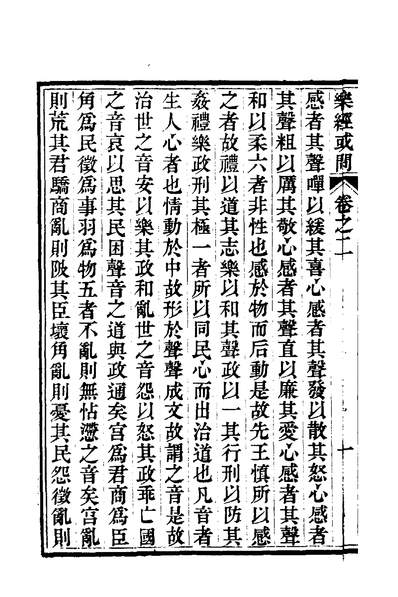 樂經或問
卷之二
十
感者其聲嘽以緩其喜心感者其聲發以散其怒心感者
其聲粗以厲其敬心感者其聲直以廉其愛心感者其聲
和以柔六者非性也感於物而后動是故先王慎所以感
之者故禮以道其志樂以和其聲政以一其行刑以防其
姦禮樂政刑其極一者所以同民心而出治道也凡音者
生人心者也情動於中故形於聲聲成文故謂之音是故
治世之音安以樂其政和亂世之音怨以怒其政乖亡國
之音哀以思其民困聲音之道與政通矣宮爲君商爲臣
角爲民徵爲事羽爲物五者不亂則無怗懘之音矣宮亂
則荒其君驕商亂則陂其臣壞角亂則憂其民怨徵亂則